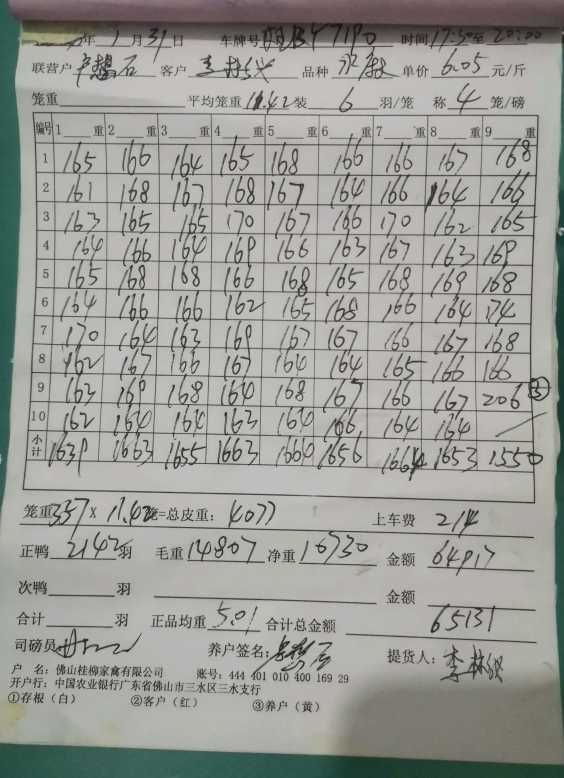 年 1 月 31 日 车牌号 Y7190 时间 17:50至 20:00
联营户 石 客户 李林 品种 单价 6.05 元/斤
笼重 平均笼重 11.42 装 6 羽/笼 称 4 笼/磅
编号 1 重 2 重 3 重 4 重 5 重 6 重 7 重 8 重 9 重
1 165 166 164 165 168 166 166 167 168
2 161 168 167 168 167 164 166 164 166
3 163 165 165 170 167 166 170 162 165
4 164 166 164 169 166 163 167 163 169
5 165 168 168 166 168 165 168 169 168
6 164 166 166 162 165 168 166 164 174
7 170 164 163 169 167 167 166 167 168
8 162 167 166 167 164 164 165 166 166
9 163 169 168 164 168 167 166 167 206 ③
10 162 164 164 163 164 166 164 164
小计 1639 1663 1655 1663 1664 1656 1664 1653 1550
笼重 357 × 11.42 笼=总皮重: 4077 上车费 214
正鸭 2142 羽 毛重 14807 净重 10730 金额 64917
次鸭 羽 金额
合计 羽 正品均重 5.01 合计总金额 65131
司磅员 养户签名: 石 提货人: 李林
户 名: 佛山桂柳家禽有限公司 账号: 444 401 010 400 169 29
开户行: 中国农业银行广东省佛山市三水区三水支行
①存根(白) ②客户(红) ③养户(黄)